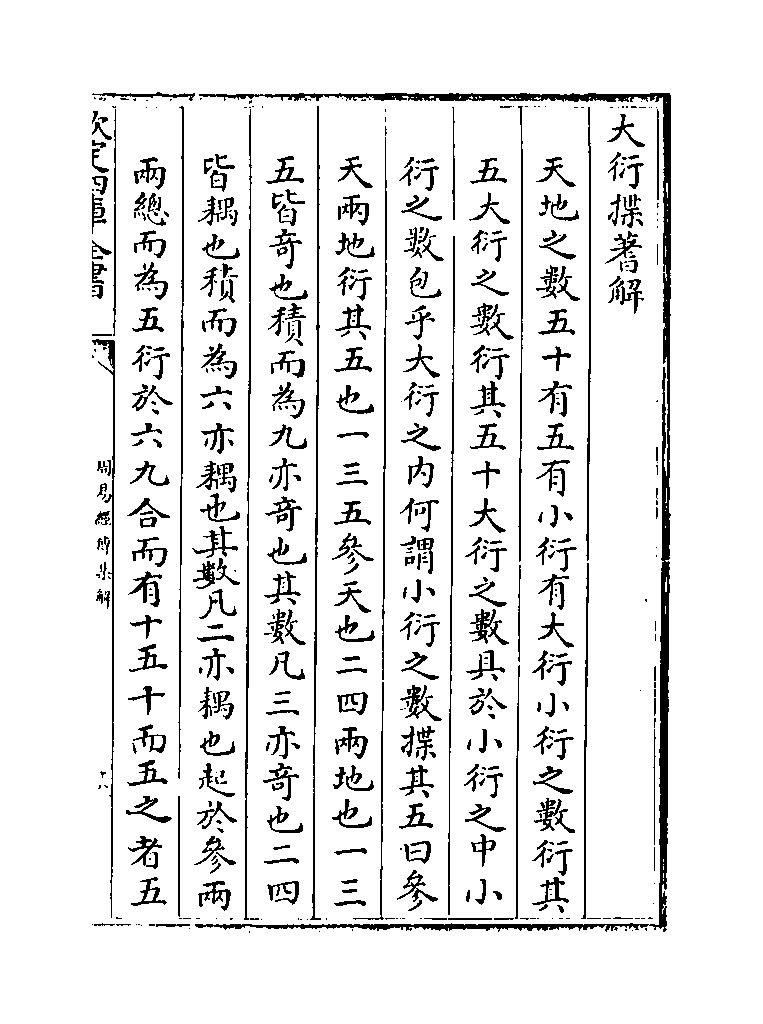 大衍揲蓍解
天地之數五十有五有小衍有大衍小衍之數衍其
五大衍之數衍其五十大衍之數具於小衍之中小
衍之數包乎大衍之内何謂小衍之數揲其五曰參
天兩地衍其五也一三五參天也二四兩地也一三
五皆奇也積而為九亦奇也其數凡三亦奇也二四
皆耦也積而為六亦耦也其數凡二亦耦也起於參兩
兩總而為五衍於六九合而有十五十而五之者五
欽定四庫全書
周易經傳集解
十八